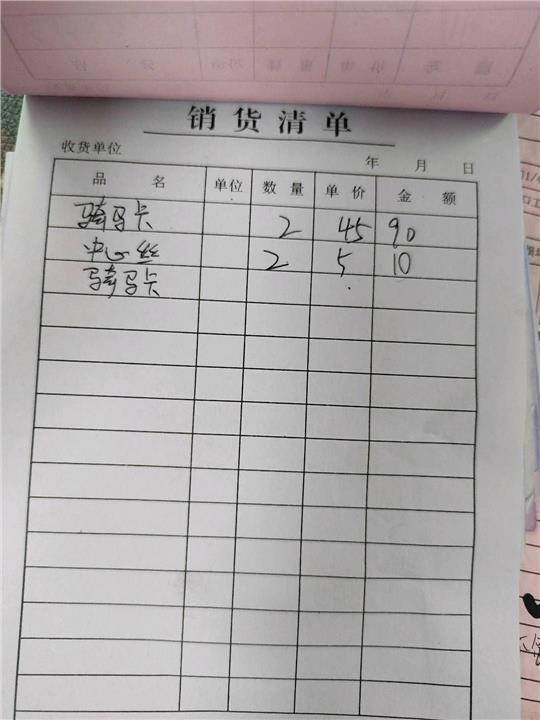 销货清单
收货单位 年 月 日
品 名 单位 数 量 单 价 金 额
骑马卡 2 45 90
中心丝 2 5 10
骑马卡